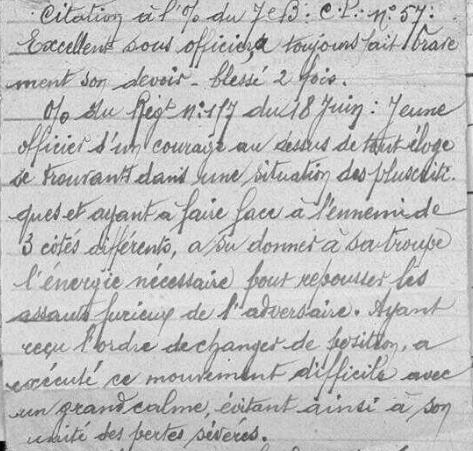 Citation à l'O/o du 7e B: C.P: n° 57:
Excellent sous officier, a toujours fait brave
ment son devoir - blessé 2 fois.
O/o du Régt n° 117 du 18 Juin: Jeune
officier d'un courage au dessus de tout éloge
se trouvant dans une situation des plus criti-
ques et ayant à faire face à l'ennemi de
3 côtés différents, a su donner à sa troupe
l'énergie nécessaire pour repousser les
assauts furieux de l'adversaire. Ayant
reçu l'ordre de changer de position, a
exécuté ce mouvement difficile avec
un grand calme, évitant ainsi à son
unité des pertes sévères.